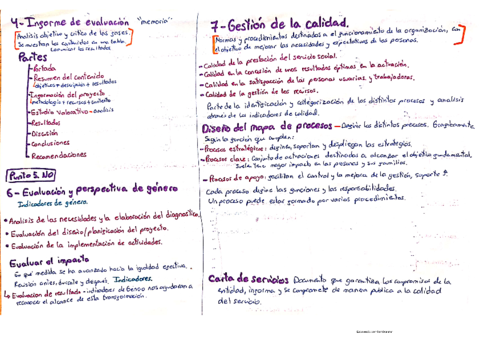 4-Informe de evaluación "memoria"
Análisis objetivo y crítico de las fases.
Se muestran los contenidos en una tabla.
Comunicar los resultados
Partes
Portada
Resumen del contenido
objetivos + descripción + resultados
Información del proyecto
metodología + recursos + contexto
Estudio valorativo - análisis
Resultados
Discusión
Conclusiones
Recomendaciones
Punto 5. NO
6-Evaluación y perspectiva de género
Indicadores de género.
• Análisis de las necesidades y la elaboración del diagnóstico
• Evaluación del diseño/planificación del proyecto.
• Evaluación de la implementación de actividades.
Evaluar el impacto
En qué medida se ha avanzado hacia la igualdad efectiva.
Revisión antes, durante y después. Indicadores.
Evaluación de resultado - indicadores de Género nos ayudarán a
reconocer el alcance de esta transformación.
7-Gestión de la calidad.
Normas y procedimientos destinados al funcionamiento de la organización, con
el objetivo de mejorar las necesidades y expectativas de las personas.
- Calidad de la prestación del servicio social.
- Calidad en la consecución de unos resultados óptimos en la actuación.
- Calidad en la satisfacción de las personas usuarias y trabajadoras.
- Calidad de la gestión de los recursos.
Parte de la identificación y categorización de los distintos procesos y análisis
através de los indicadores de calidad.
Diseño del mapa de procesos - Definir los distintos procesos.
Según la función que cumplen:
- Procesos estratégicos: definen, soportan y despliegan las estrategias.
- Procesos clave: Conjunto de actuaciones destinadas a alcanzar el objetivo fundamental,
mejor impacto en las personas y sus familias.
- Procesos de apoyo: facilitan el control y la mejora de la gestión, soporte
Cada proceso define las funciones y las responsabilidades.
Un proceso puede estar formado por varios procedimientos.
Carta de servicios Documento que garantiza los compromisos de la
entidad, informa y se compromete de manera pública a la calidad
del servicio.